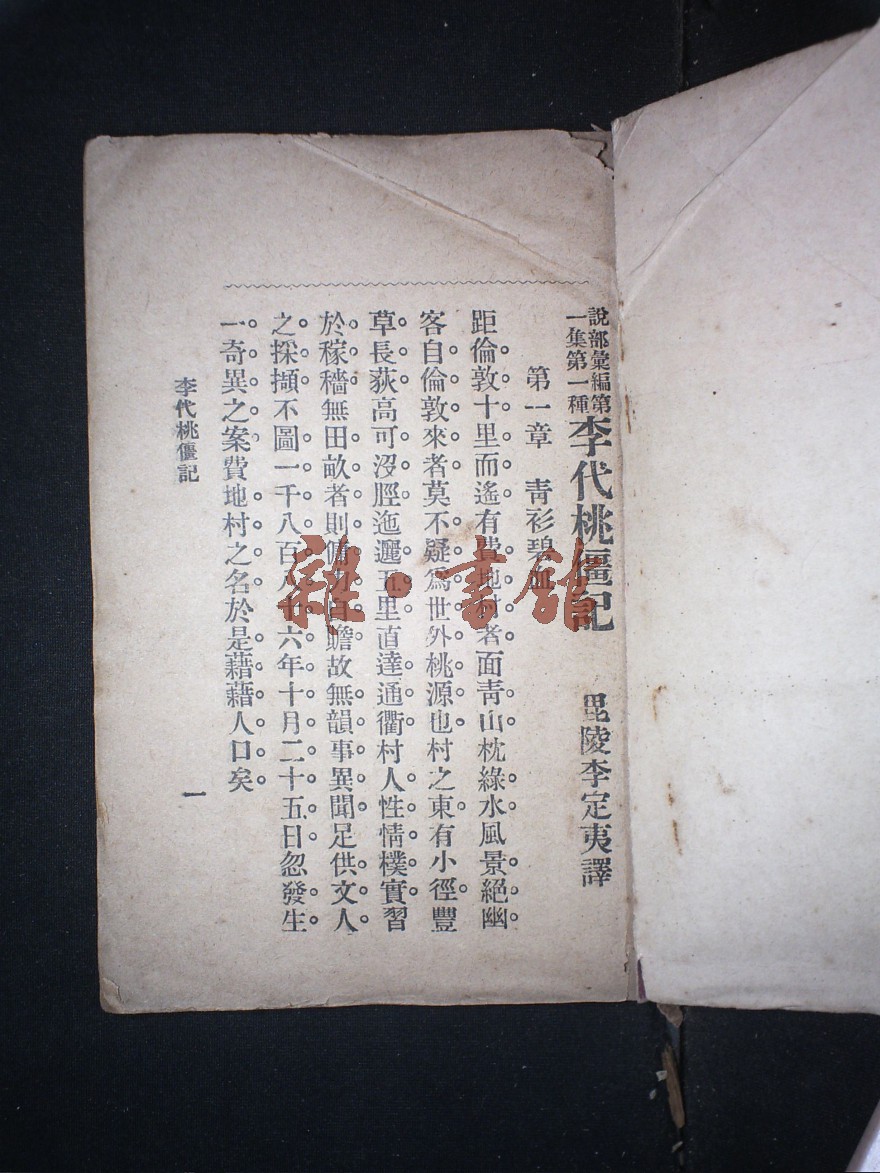 說部彙編第
一集第一種
李代桃僵記 毘陵李定夷譯
第一章 靑衫碧血
距倫敦十里而遙有費地村者面靑山枕綠水風景絕幽
客自倫敦來者莫不疑爲世外桃源也村之東有小徑豐
草長荻高可沒脛迤邐五里直達通衢村人性情樸實習
於稼穡無田畝者則傭自贍故無韻事異聞足供文人
之採擷不圖一千八百八十六年十月二十五日忽發生
一奇異之案費地村之名於是藉藉人口矣
李代桃僵記
一
雜·書館